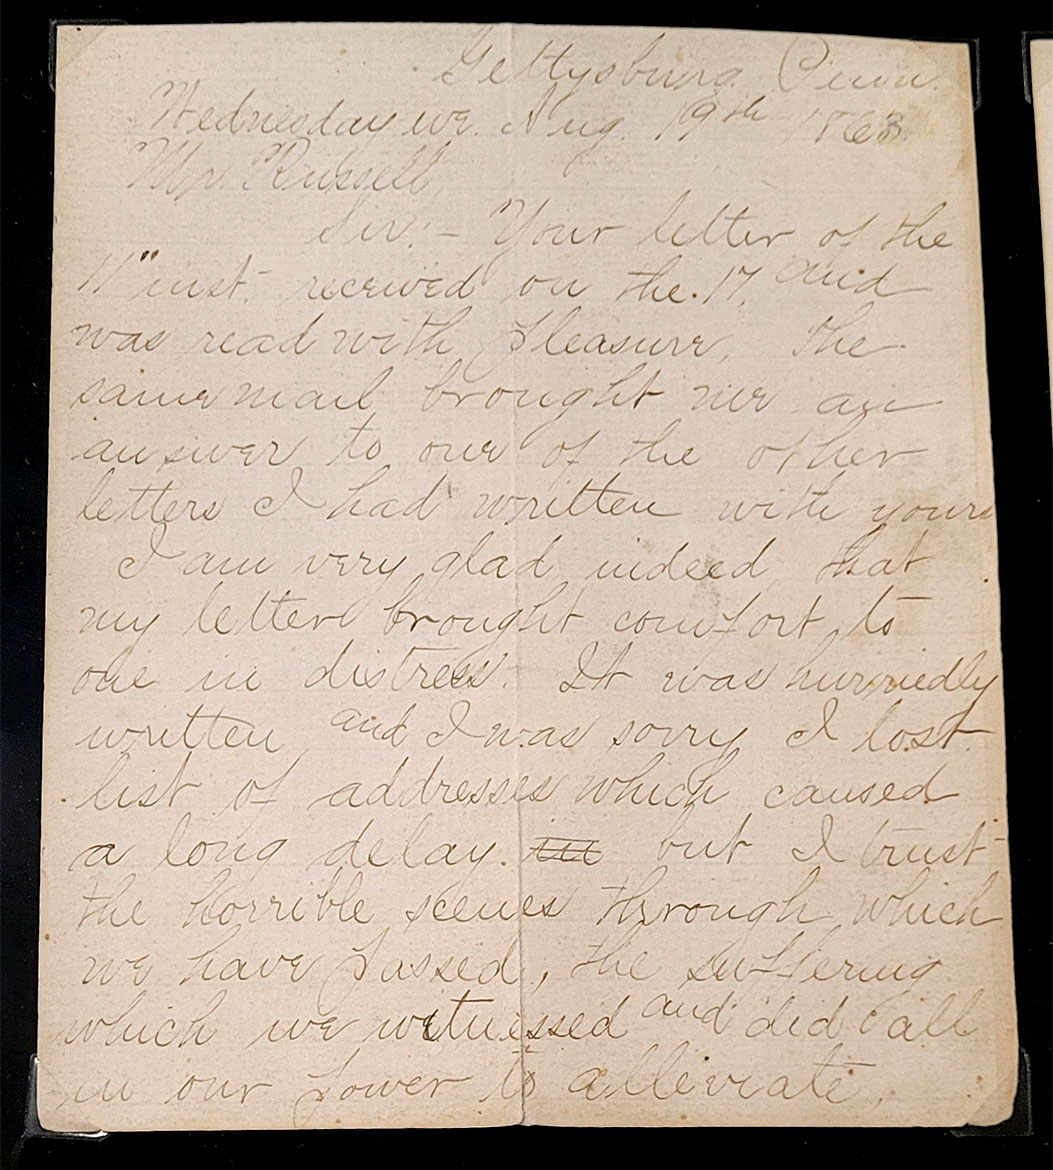 Gettysburg Penn.
Wednesday eve. Aug. 19th 1863.
Mr. Russell,
Sir:- Your letter of the
11" inst. received on the 17, and
was read with pleasure, The
same mail brought me an
answer to one of the other
letters I had written with yours
I am very glad indeed that
my letter brought comfort to
one in distress. It was hurriedly
written and I was sorry I lost
list of addresses which caused
a long delay. but I trust
the horrible scenes through which
we have passed, the suffering
which we witnessed and did all
in our power to alleviate,